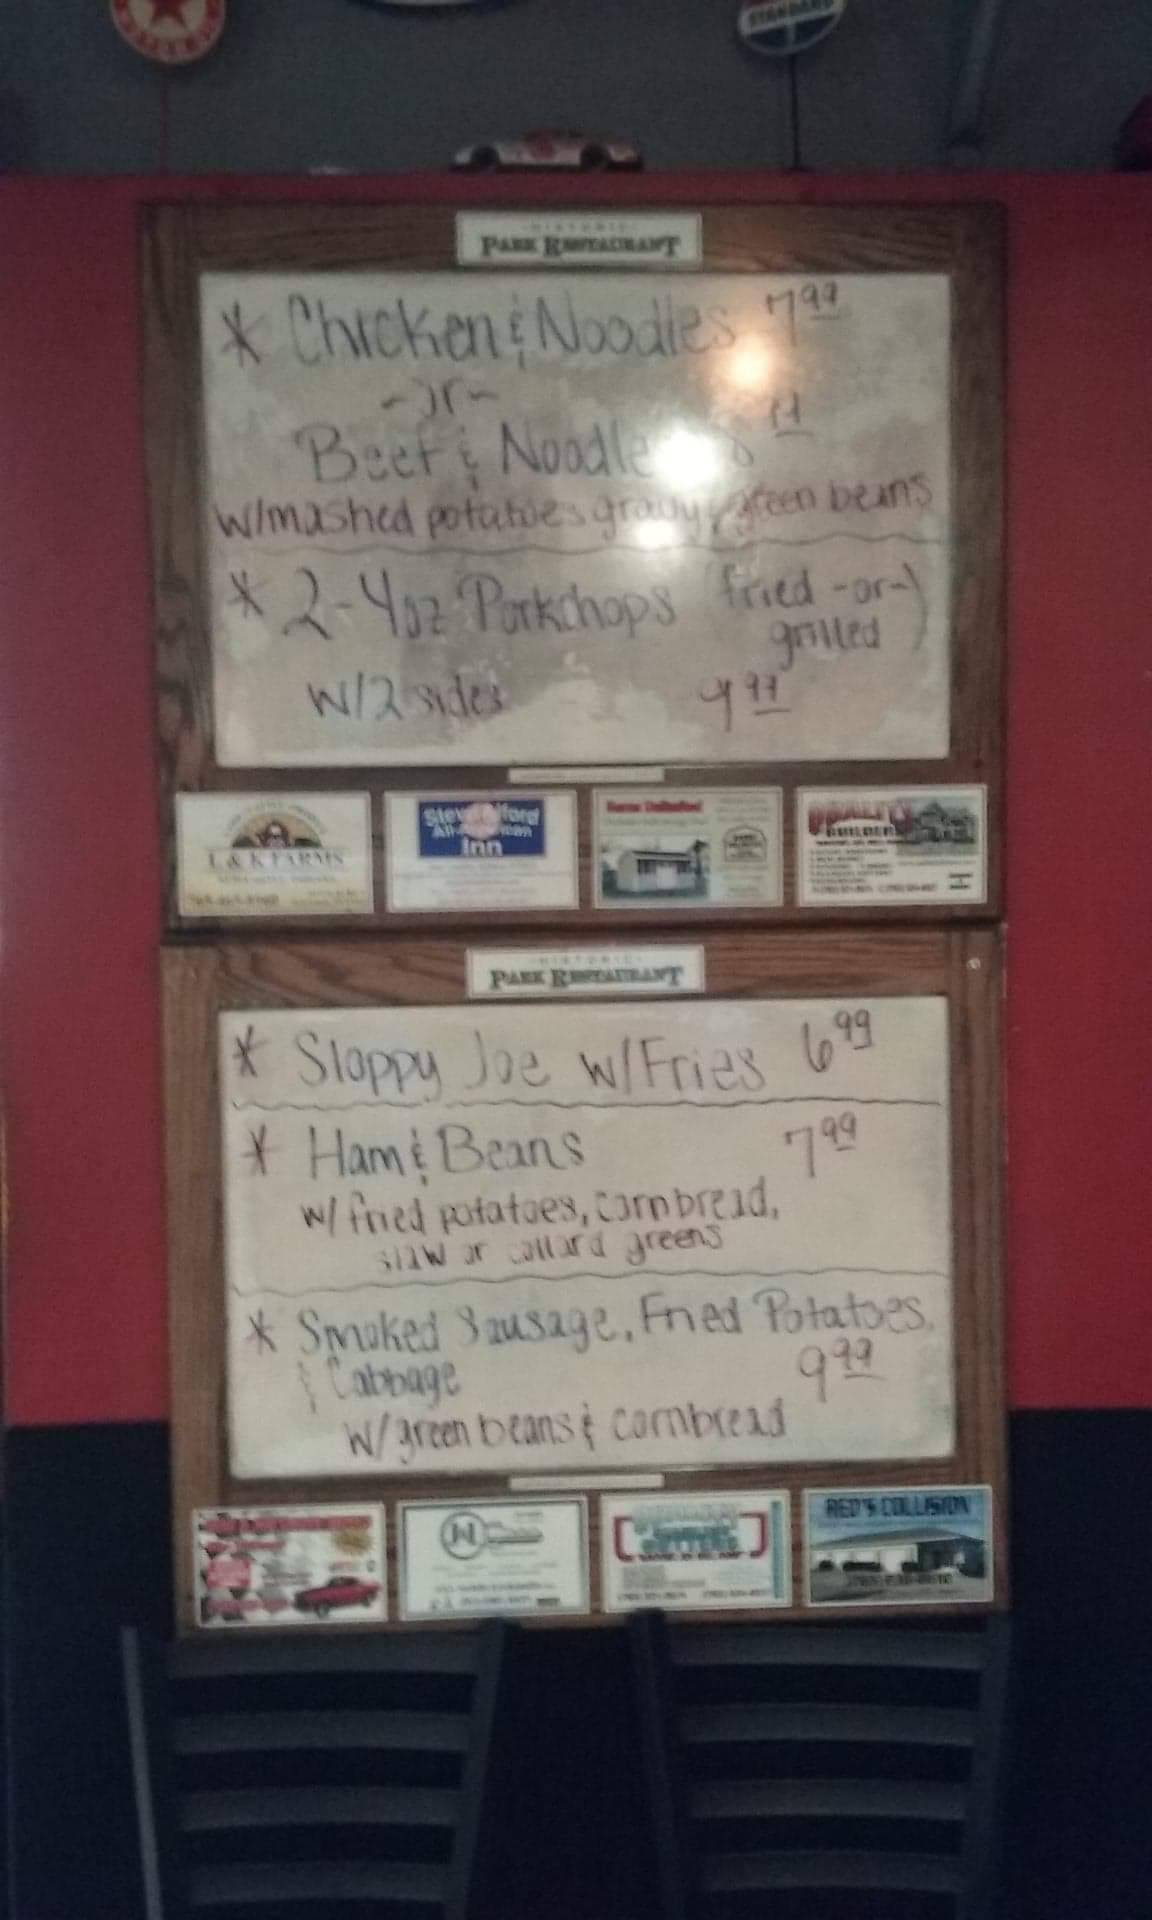 STANDARD
HISTORIC
PARK RESTAURANT
* Chicken & Noodles 7.99
-or-
Beef & Noodle
w/mashed potatoes gravy, green beans
* 2-4oz Porkchops (fried -or-
grilled)
w/2 sides 9.99
L & K FARMS
Inn
QUALITY
BUILDER
HISTORIC
PARK RESTAURANT
* Sloppy Joe w/Fries 6.99
* Ham & Beans 7.99
w/ fried potatoes, cornbread,
slaw or collard greens
* Smoked Sausage, Fried Potatoes,
& Cabbage 9.99
w/green beans & cornbread
RED'S COLLISION